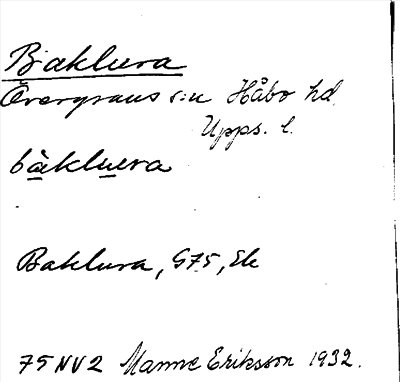 Baklura
Övergrans s:n Håbo hd.
Upps. l.
bakluera
Baklura, G75, Ek
75 NV2 Manne Eriksson 1932.